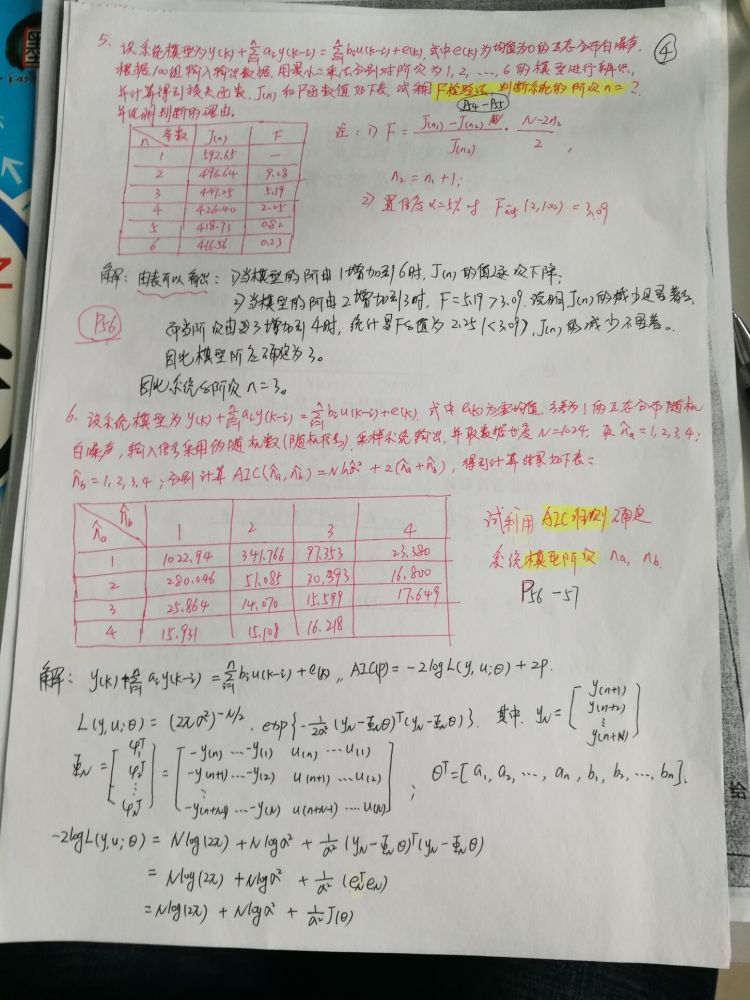 ④
5. 设系统模型为 y(k)+Σaᵢy(k-i)=Σbᵢu(k-i)+e(k), 式中e(k)为均值为0的正态分布白噪声.
根据100组输入输出数据, 用最小二乘法分别对阶次为1, 2, ..., 6的模型进行辨识,
并计算得到损失函数, J(n)和F函数值如下表, 试利用F检验法, 判断系统的阶次n=?
P54-P55
并说明判断的理由.
n 参数 J(n) F
1 592.65 —
2 496.64 9.28
3 447.25 5.19
4 426.40 2.25
5 418.73 0.82
6 416.56 0.23
注: 1) F = (J(n₁)-J(n₂))/J(n₂) · (N-2n₂)/2,
n₂ = n₁+1;
2) 置信度α=5%时 F₀.₀₅(2,100)=3.09
解: 由表可以看出: 1)当模型的阶由1增加到6时, J(n)的值逐次下降.
2)当模型的阶由2增加到3时, F=5.19>3.09. 说明J(n)的减少是显著的
P56
而当阶次由3增加到4时, 统计量F的值为2.25(<3.09), J(n)的减少不显著。
因此模型阶应确定为3。
因此系统的阶次n=3。
6. 设系统模型为 y(k)+Σaᵢy(k-i)=Σbᵢu(k-i)+e(k), 式中e(k)为零均值, 方差为1的正态分布随机
白噪声, 输入信号采用伪随机数(随机信号). 采样系统输出, 并取数据长度N=1024. 取n̂a=1,2,3,4;
n̂b=1,2,3,4; 分别计算AIC(n̂a,n̂b)=Nlnσ̂²+2(n̂a+n̂b), 得到计算结果如下表:
n̂a n̂b 1 2 3 4
1 1022.94 341.766 97.353 23.380
2 280.046 51.085 30.393 16.800
3 25.864 14.070 15.599 17.649
4 15.931 15.108 16.218
试利用AIC准则确定
系统模型阶次 na, nb.
P56-57
解: y(k)+Σaᵢy(k-i)=Σbᵢu(k-i)+e(k), AIC(p)=-2logL(y,u;θ)+2p.
L(y,u;θ)=(2πσ²)^(-N/2) · exp{-1/(2σ²)(y_N-Φ_Nθ)ᵀ(y_N-Φ_Nθ)}. 其中. y_N=[y(n+1) y(n+2) ⋮ y(n+N)]
Φ_N=[φ₁ᵀ φ₂ᵀ ⋮ φ_Nᵀ]=[-y(n) ... -y(1) u(n) ... u(1)
-y(n+1) ... -y(2) u(n+1) ... u(2)
⋮
-y(n+N-1) ... -y(N) u(n+N-1) ... u(N)]; θᵀ=[a₁, a₂, ..., aₙ, b₁, b₂, ..., bₙ].
-2logL(y,u;θ) = Nlog(2π)+Nlogσ²+1/σ²(y_N-Φ_Nθ)ᵀ(y_N-Φ_Nθ)
= Nlog(2π)+Nlogσ²+1/σ²(e_Nᵀe_N)
= Nlog(2π)+Nlogσ²+1/σ²J(θ)
给